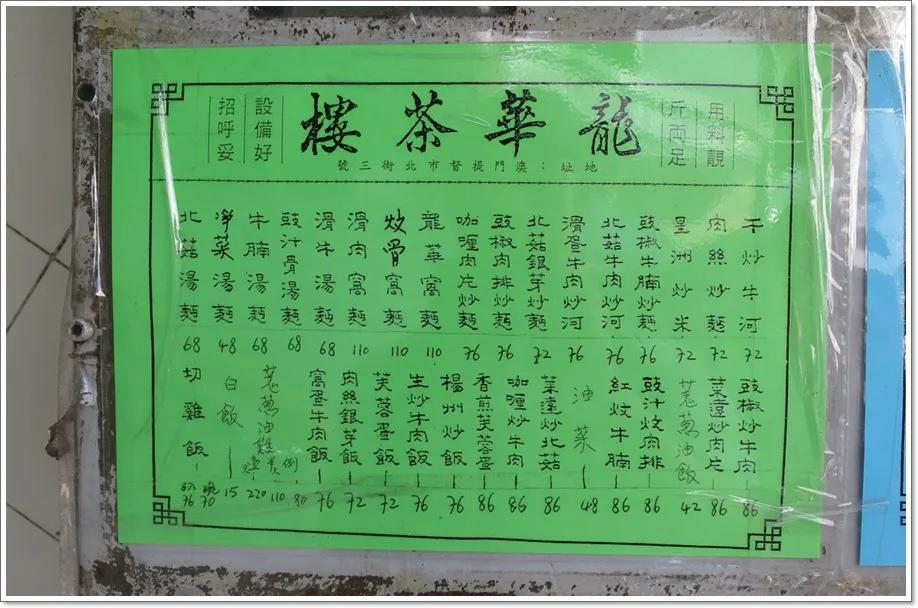 用料靚
斤両足
龍華茶樓
設備好
招呼妥
地址：澳門提督市北街三號
干炒牛河 72
肉絲炒麵 72
星洲炒米 72
豉椒牛腩炒麵 76
北菇牛肉炒河 76
滑蛋牛肉炒河 76
北菇銀芽炒麵 72
豉椒肉排炒麵 76
咖喱肉片炒麵 76
龍華窩麵 110
炆骨窩麵 110
滑肉窩麵 110
滑牛湯麵 68
豉汁骨湯麵 68
牛腩湯麵 68
淨菜湯麵 48
北菇湯麵 68
豉椒炒牛肉 86
菜遠炒肉片 86
羗葱油飯 42
豉汁炆肉排 86
紅炆牛腩 86
油菜 48
菜遠炒北菇 86
咖喱炒牛肉 86
香煎芙蓉蛋 86
楊州炒飯 76
生炒牛肉飯 76
芙蓉蛋飯 72
肉絲銀芽飯 72
窩蛋牛肉飯 76
羗葱油雞 例 80 110 220
白飯 15
切雞飯 70 76